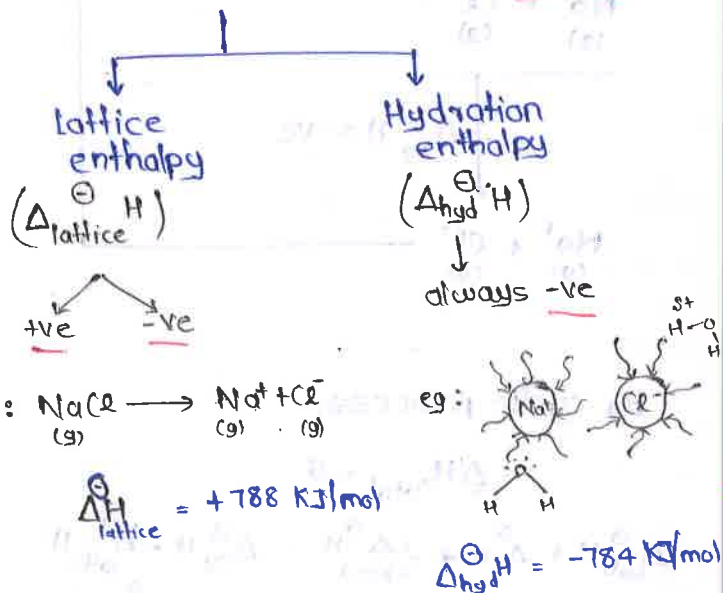 Lattice
enthalpy
(Δ lattice H⊖)
+ve -ve
: NaCl ⟶ Na⁺ + Cl⁻
(g) (g) . (g)
ΔH⊖ lattice = +788 KJ/mol
Hydration
enthalpy
(Δ hyd H⊖)
always -ve
eg :
Na⁺
Cl⁻
δ+
H-O
H
:O:
H H
Δ hyd H⊖ = -784 KJ/mol